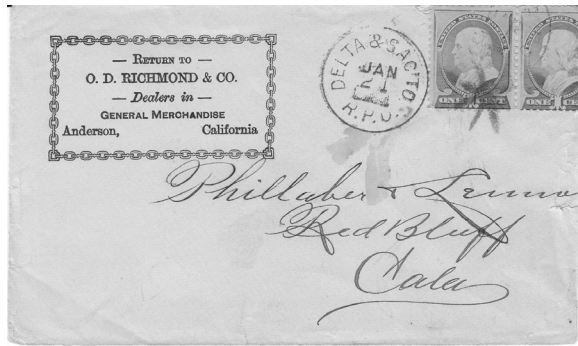 — RETURN TO —
O. D. RICHMOND & CO.
— Dealers in —
GENERAL MERCHANDISE
Anderson, California
DELTA & SAC'TO.
JAN
21
R.P.O.
ONE CENT
Phillaber &
Red Bluff
Cala